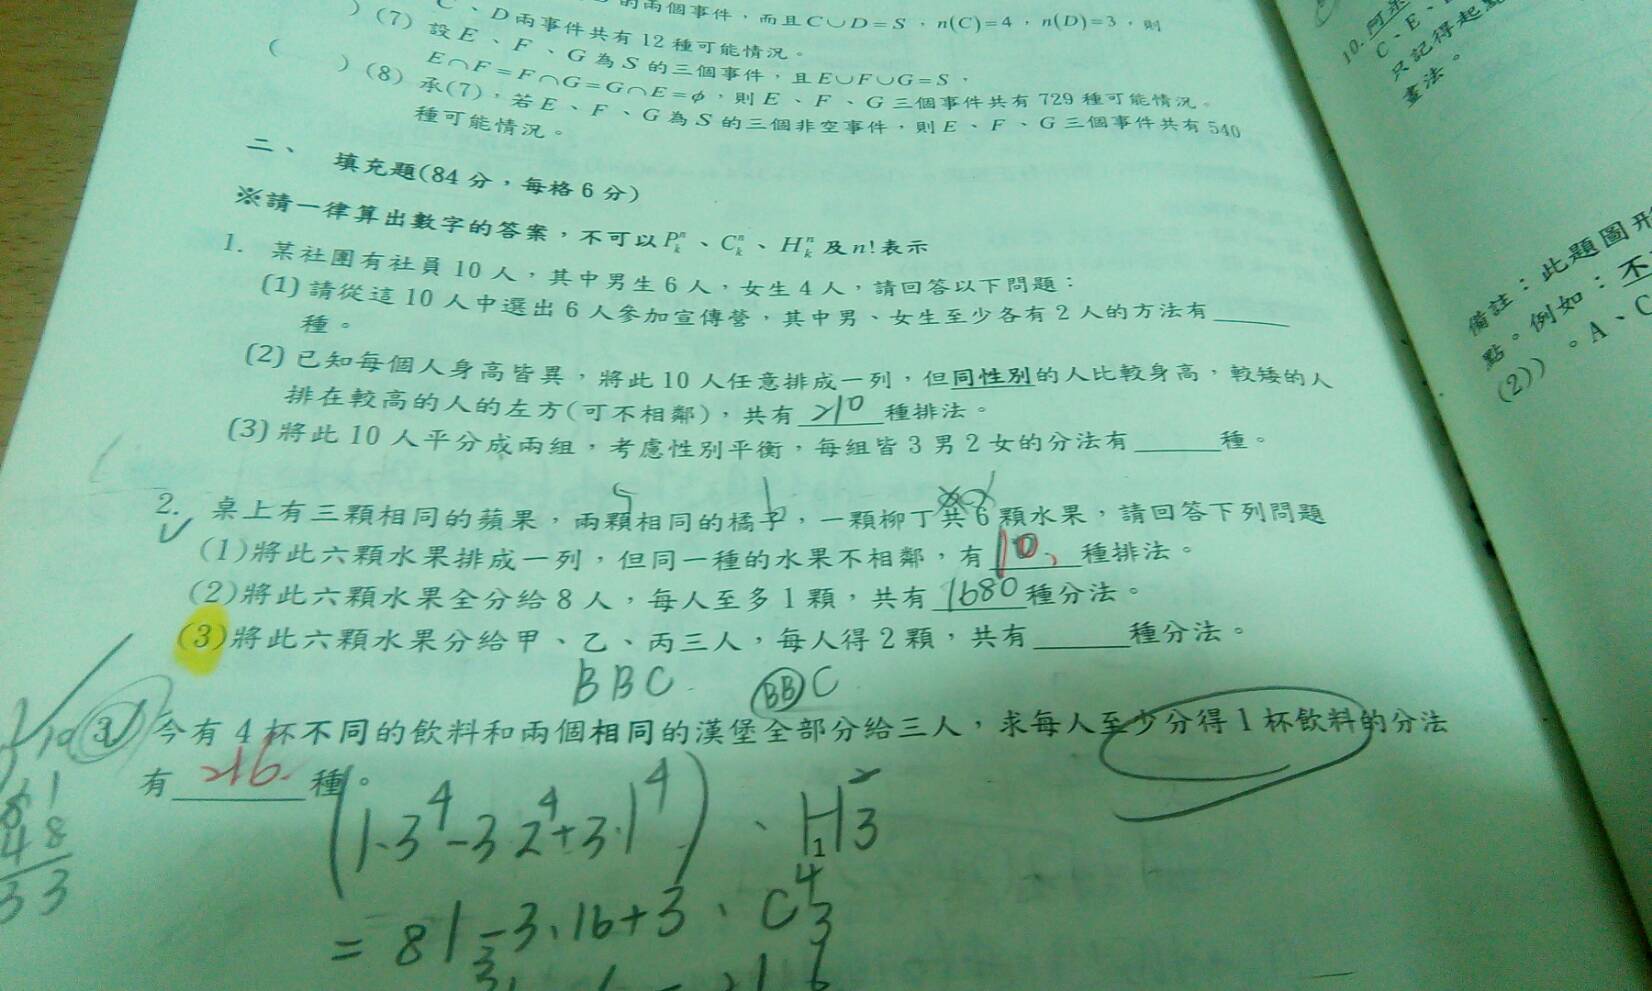 的兩個事件，而且C∪D=S，n(C)=4，n(D)=3，則
C、D兩事件共有12種可能情況。
)(7) 設E、F、G為S的三個事件，且E∪F∪G=S，
E∩F=F∩G=G∩E=ϕ，則E、F、G三個事件共有729種可能情況。
( )(8) 承(7)，若E、F、G為S的三個非空事件，則E、F、G三個事件共有540
種可能情況。
二、 填充題(84分，每格6分)
※請一律算出數字的答案，不可以Pⁿₖ、Cⁿₖ、Hⁿₖ及n!表示
1. 某社團有社員10人，其中男生6人，女生4人，請回答以下問題：
(1) 請從這10人中選出6人參加宣傳營，其中男、女生至少各有2人的方法有______
種。
(2) 已知每個人身高皆異，將此10人任意排成一列，但同性別的人比較身高，較矮的人
排在較高的人的左方(可不相鄰)，共有 210 種排法。
(3) 將此10人平分成兩組，考慮性別平衡，每組皆3男2女的分法有______種。
2. 桌上有三顆相同的蘋果，兩顆相同的橘子，一顆柳丁共6顆水果，請回答下列問題
(1)將此六顆水果排成一列，但同一種的水果不相鄰，有 10 種排法。
(2)將此六顆水果全分給8人，每人至多1顆，共有 1680 種分法。
(3)將此六顆水果分給甲、乙、丙三人，每人得2顆，共有______種分法。
BBC (BB)C
3. 今有4杯不同的飲料和兩個相同的漢堡全部分給三人，求每人至少分得1杯飲料的分法
有 216 種。
(1·3⁴-3·2⁴+3·1⁴)、H
= 81-3·16+3、C
10. 阿
C、E、
只記得起點
畫法。
備註：此題圖形
點。例如：不
(2))。A、C